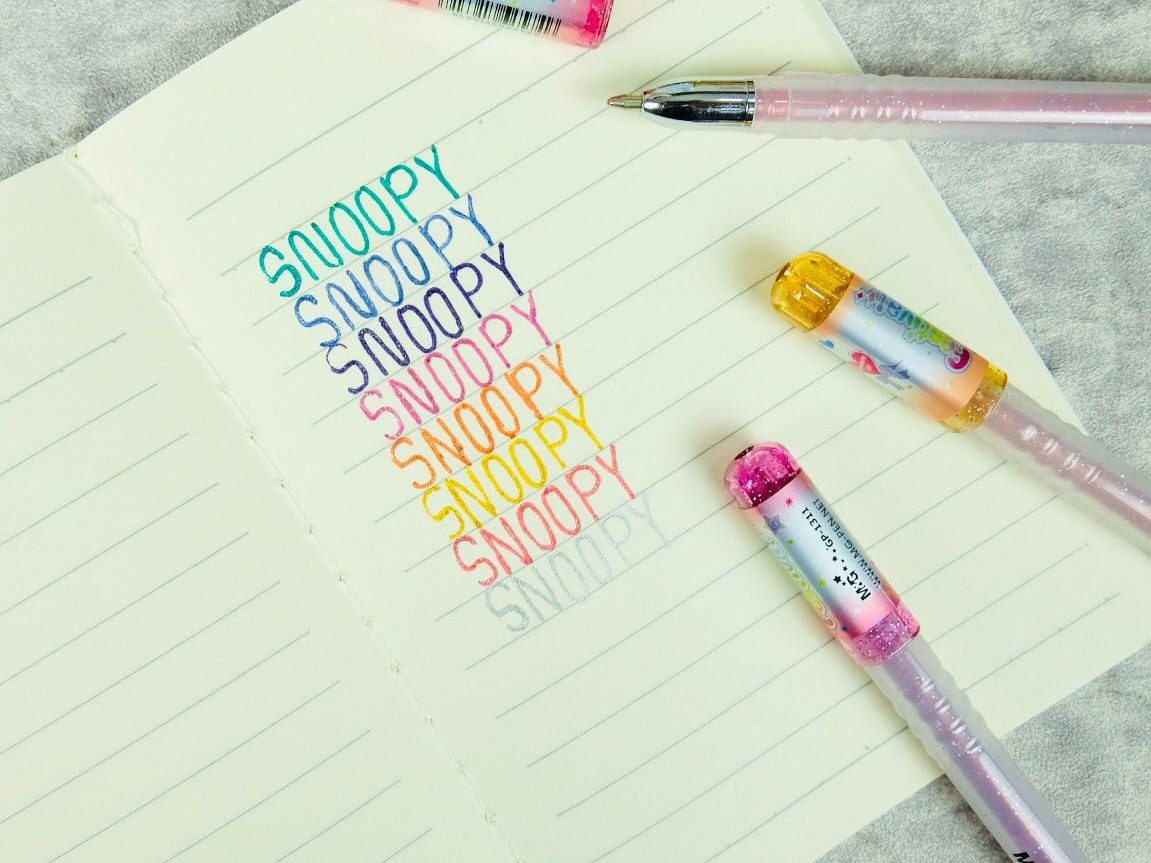 SNOOPY
SNOOPY
SNOOPY
SNOOPY
SNOOPY
SNOOPY
SNOOPY
SNOOPY
M&G GP-1311
WWW.MG-PEN.NET